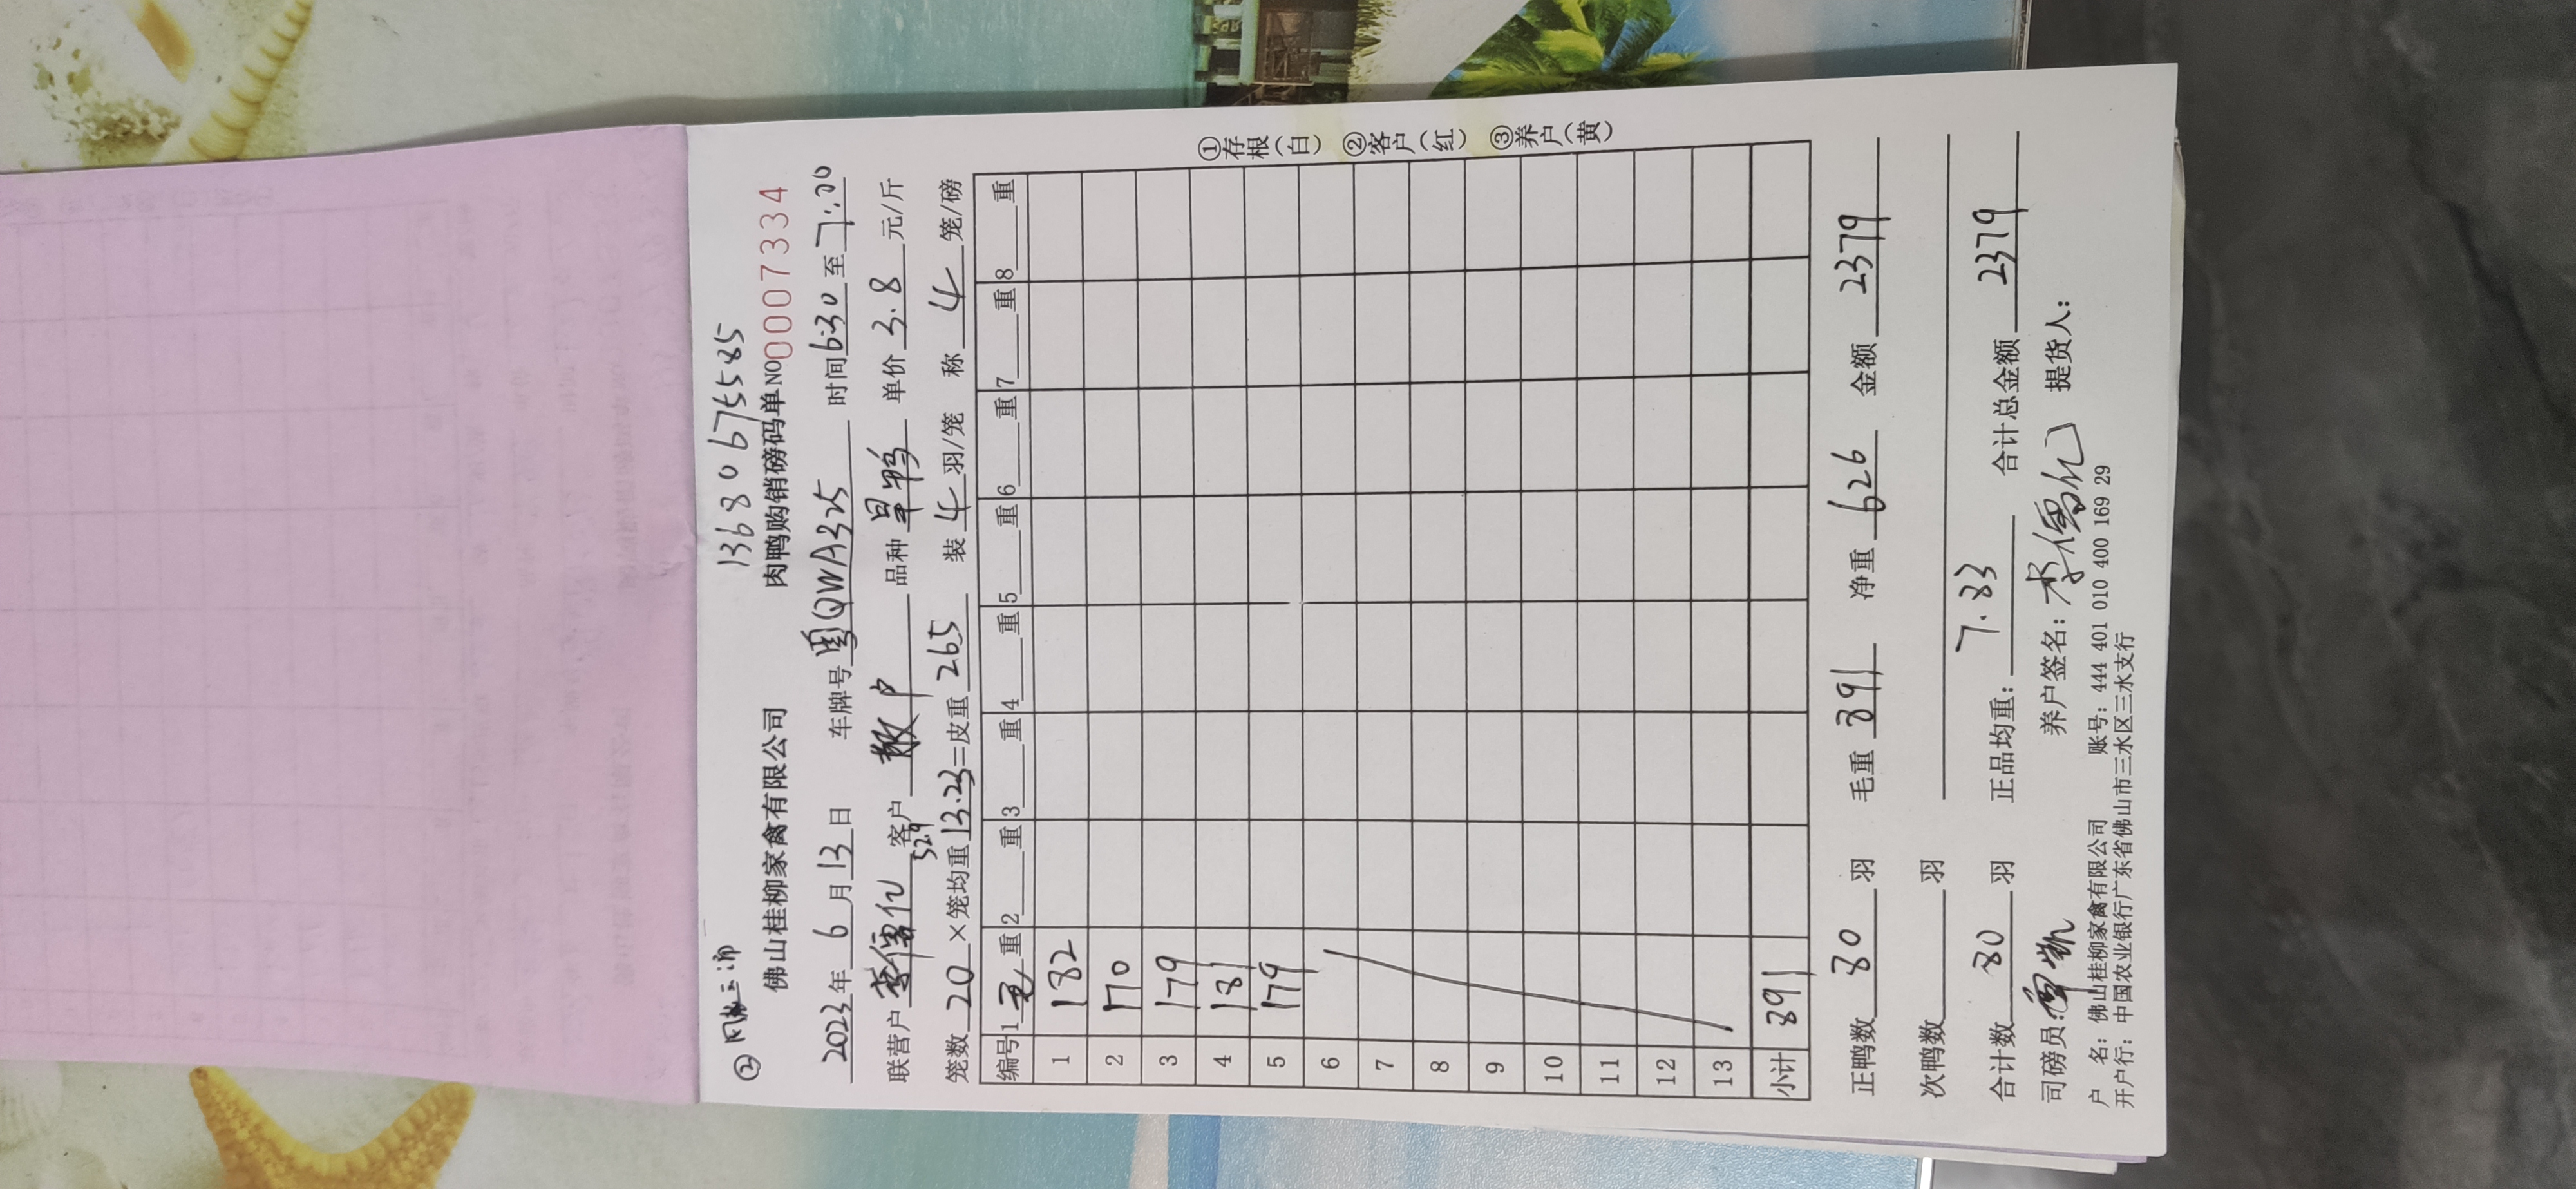 ② 13680675585
佛山桂柳家禽有限公司 肉鸭购销磅码单 NO 00007334
2023年6月13日 车牌号 粤QWA325 时间 6:30 至 7:20
联营户 李儒亿 客户 散户 品种 旱鸭 单价 3.8 元/斤
529
笼数 20 ×笼均重 13.23 =皮重 265 装 4 羽/笼 称 4 笼/磅
编号 1 毛 重 2 重 3 重 4 重 5 重 6 重 7 重 8 重
1 182
2 170
3 179
4 181
5 179
6
7
8
9
10
11
12
13
小计 891
正鸭数 80 羽 毛重 891 净重 626 金额 2379
次鸭数 羽
合计数 80 羽 正品均重: 7.83 合计总金额 2379
司磅员: 养户签名: 李儒亿 提货人:
户 名: 佛山桂柳家禽有限公司 账号: 444 401 010 400 169 29
开户行: 中国农业银行广东省佛山市三水区三水支行
①存根(白) ②客户(红) ③养户(黄)